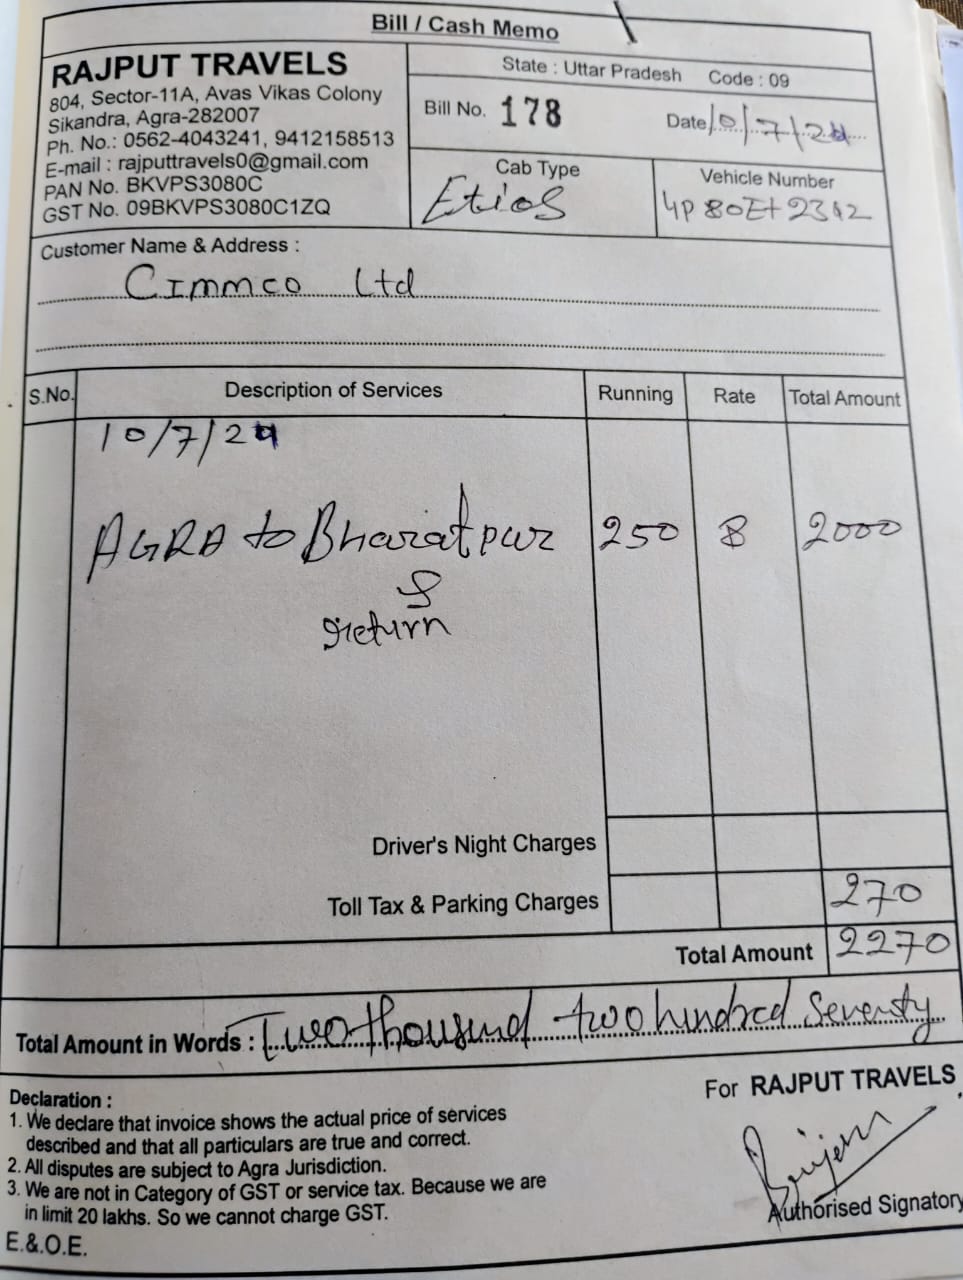 Bill / Cash Memo
RAJPUT TRAVELS
804, Sector-11A, Avas Vikas Colony
Sikandra, Agra-282007
Ph. No.: 0562-4043241, 9412158513
E-mail : rajputtravels0@gmail.com
PAN No. BKVPS3080C
GST No. 09BKVPS3080C1ZQ
State : Uttar Pradesh Code : 09
Bill No. 178
Date 10/7/24
Cab Type
Etios
Vehicle Number
UP 80ET 2342
Customer Name & Address :
Cimmco Ltd
S.No. Description of Services Running Rate Total Amount
10/7/24
AGRA to Bharatpur 250 8 2000
&
return
Driver's Night Charges
Toll Tax & Parking Charges 270
Total Amount 2270
Total Amount in Words : Two thousund two hundred Seventy
Declaration :
1. We declare that invoice shows the actual price of services
described and that all particulars are true and correct.
2. All disputes are subject to Agra Jurisdiction.
3. We are not in Category of GST or service tax. Because we are
in limit 20 lakhs. So we cannot charge GST.
E.&.O.E.
For RAJPUT TRAVELS
Authorised Signatory